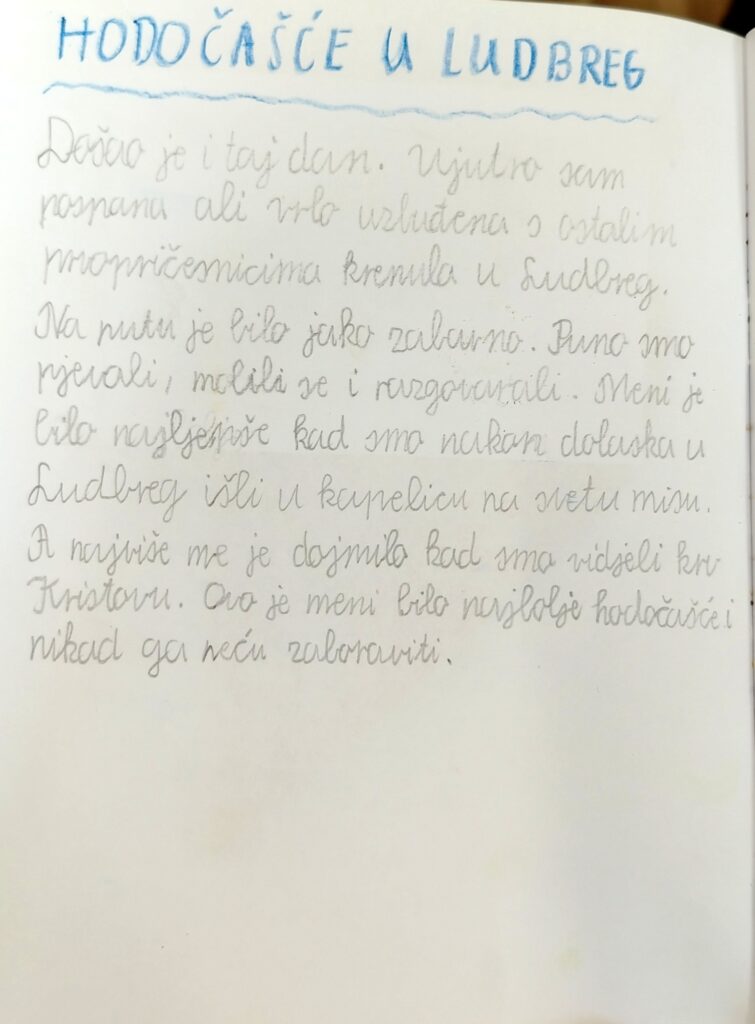 HODOČAŠĆE U LUDBREG
Došao je i taj dan. Ujutro sam
pospana ali vrlo uzbuđena s ostalim
prvopričesnicima krenula u Ludbreg.
Na putu je bilo jako zabavno. Puno smo
pjevali, molili se i razgovarali. Meni je
bilo najljepše kad smo nakon dolaska u
Ludbreg išli u kapelicu na svetu misu.
A najviše me je dojmilo kad smo vidjeli krv
Kristovu. Ovo je meni bilo najbolje hodočašće i
nikad ga neću zaboraviti.